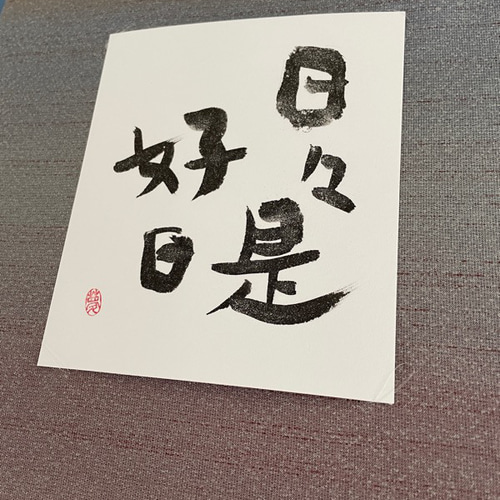 日々是
好日